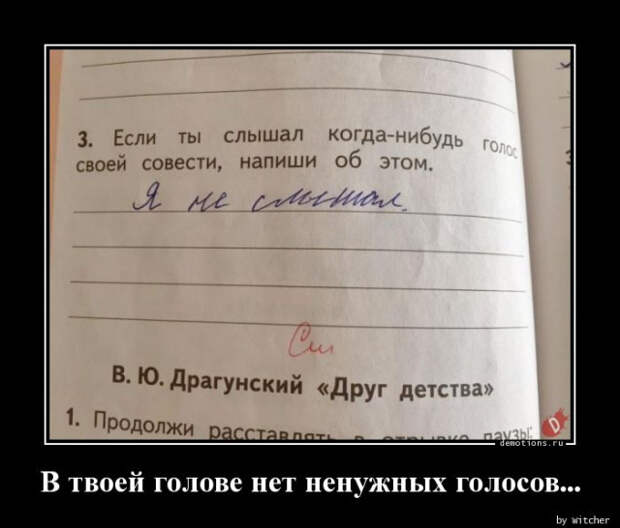 3. Если ты слышал когда-нибудь голос
своей совести, напиши об этом.
Я не слышал.
См
В. Ю. Драгунский «Друг детства»
1. Продолжи расставлять в отрывке паузы:
demotions.ru
В твоей голове нет ненужных голосов...
by Witcher